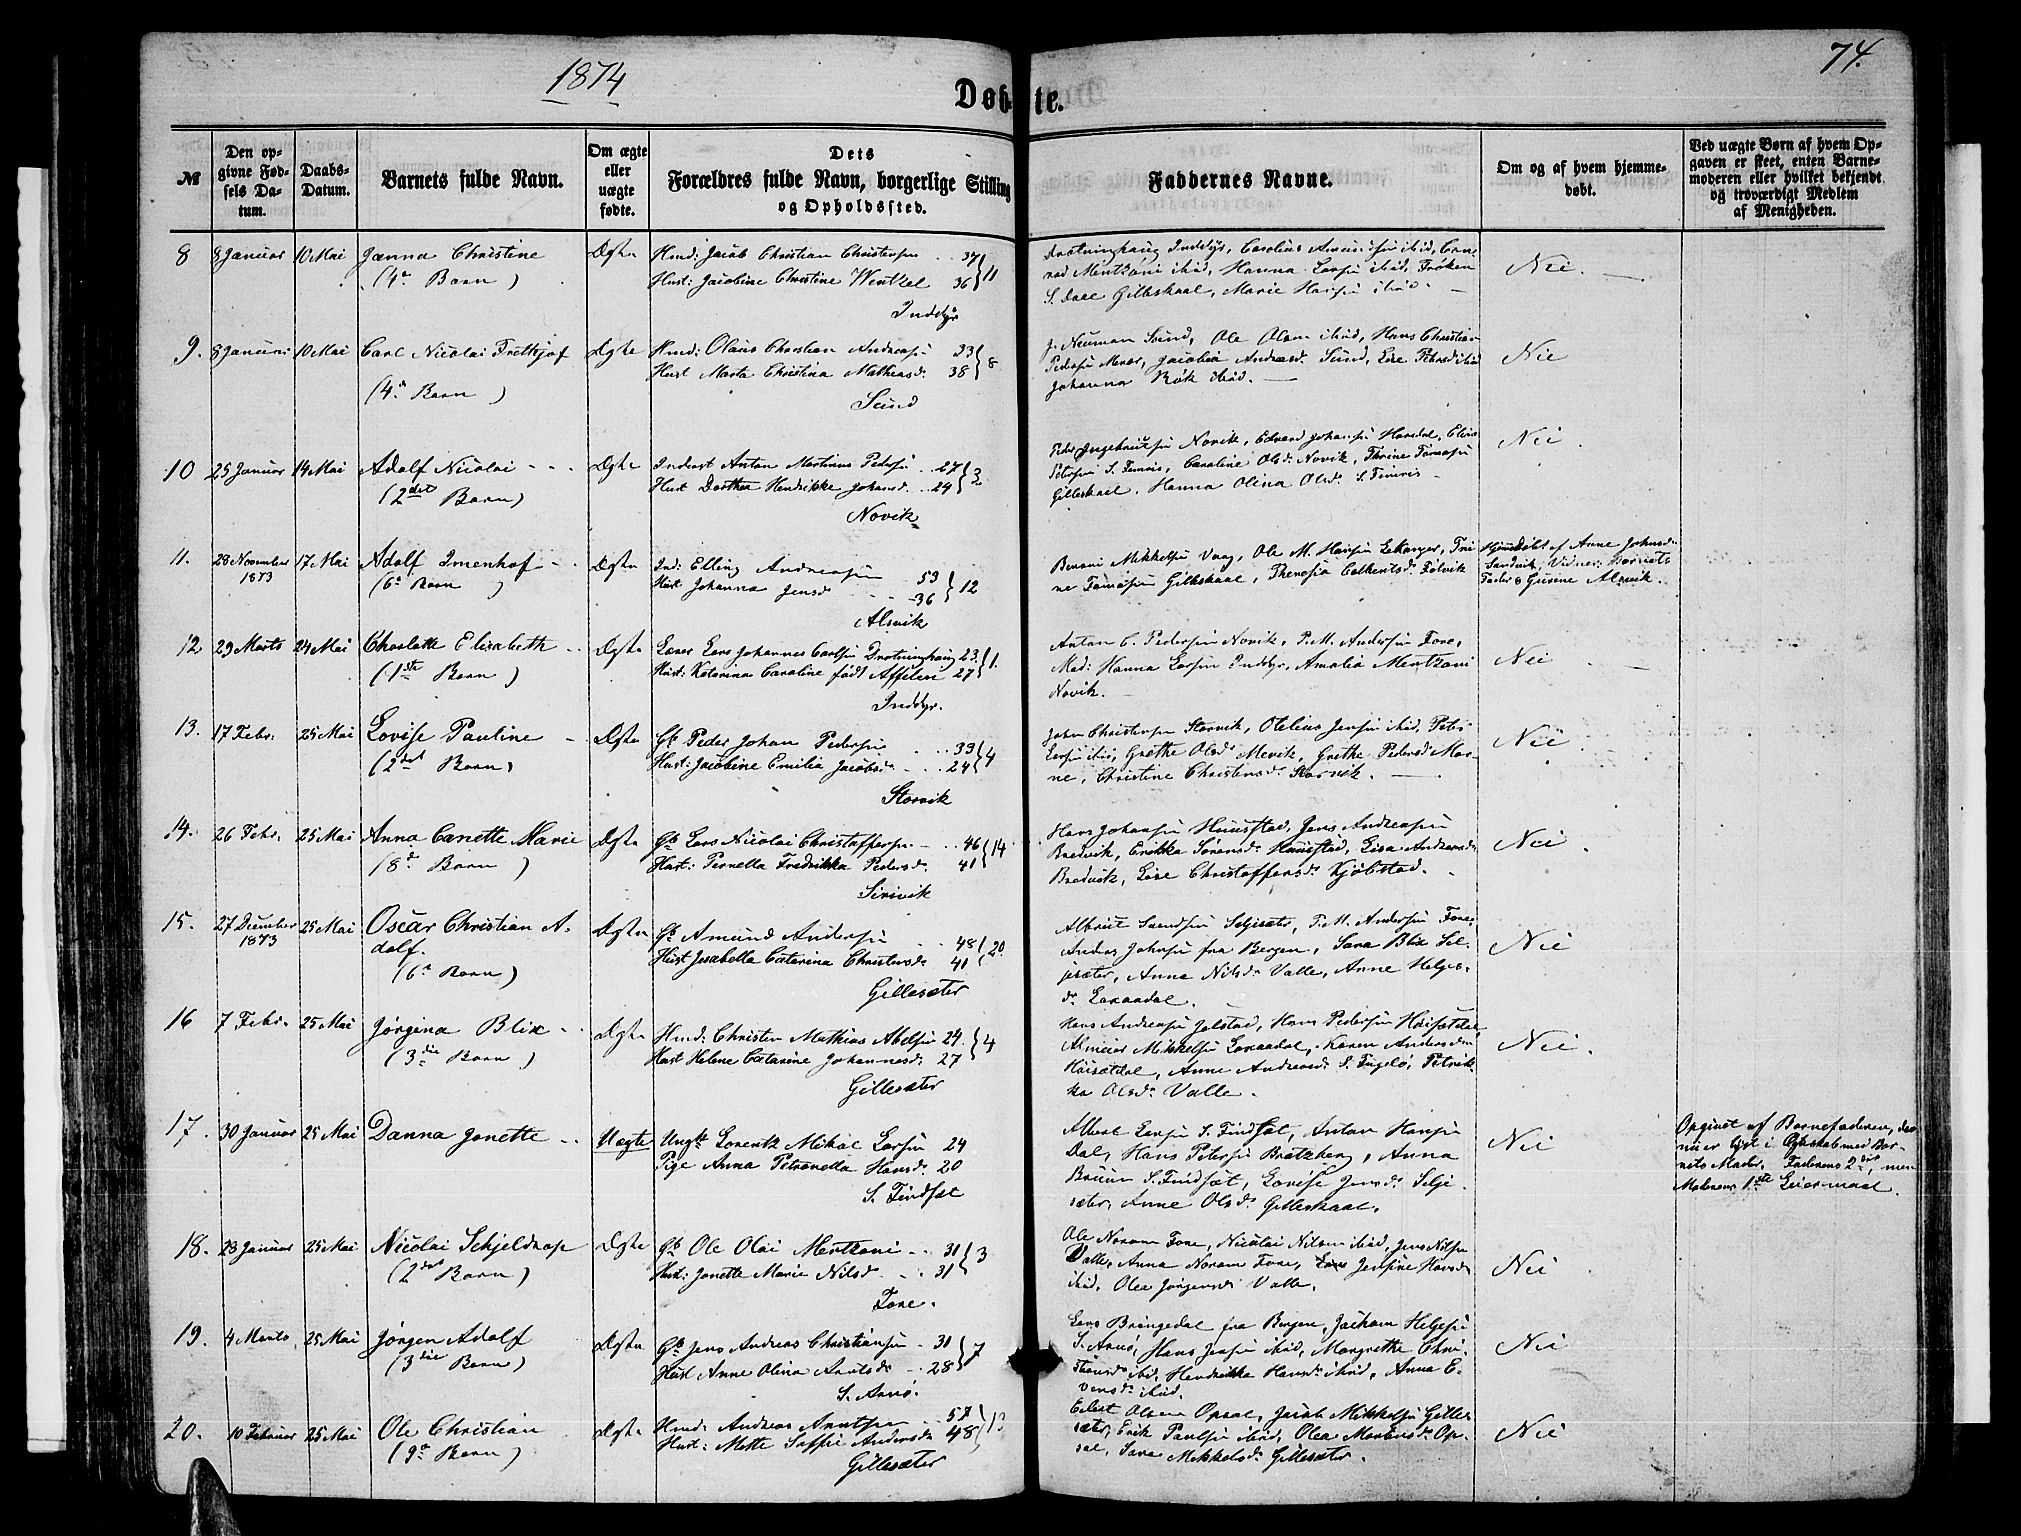 1874
74.
Døbte.
№
Den op-
givne Fød-
sels Da-
tum.
Daabs-
Datum.
Barnets fulde Navn.
Om ægte
eller
uægte
fødte.
Dets
Forældres fulde Navn, borgerlige Stilling
og Opholdssted.
Faddernes Navne.
Om og af hvem hjemme-
døbt.
Ved uægte Børn af hvem Op-
gaven er skeet, enten Barne-
moderen eller hvilket bekjendt
og troværdigt Medlem
af Menigheden.
8 8 Januar 10 Mai Janna Christine Ægte Hmd: Jacob Christian Christensen 37
(4de Barn) Hust: Jacobine Christine Wentzel 36 } 11
Inddyr
Drotninghaug Inddyr, Carolius Amundsen ibid,
Mentzoni ibid, Hanna Larsen ibid, Frøken
S. Daae Gilleskaal, Marie Hansen ibid.
Nei.
9. 8 Januar 10 Mai Carl Nicolai Frethjof Ægte Hmd: Olaus Christian Andreasen 33
(4de Barn) Hust Marta Christina Mathiasd. 38 } 8
Sund
J. Neuman Sund, Ole Olsen ibid, Hans Christian
Pedersen Mevær, Jacobia Andreasd. Sund, Lise Petersd ibid
Johanna Røk ibid.
Nei
10 25 Januar 14 Mai Adolf Nicolai Ægte Inderst Anton Martinus Pedersen 27
(2det Barn) Hust Dorthea Hendrikke Johansd. 24 } 3
Novik
Peder Ingebrigtsen Novik, Edvard Johansen Horsdal,
Petersen S. Finnes, Caroline Olsd. Novik, Thrine
Gilleskaal, Hanna Olina Olsd. S. Finnes
Nei
11. 28 November 17 Mai Adolf Imenhof Ægte Ind: Elling Andreasen 53
1873 (6te Barn) Hust Johanna Jensd 36 } 12
Alsvik
Benoni Mikkelsen Vaag, Ole M. Hansen Lekanger, Tri-
ne Tomasen Gilleskaal, Theresia Følvik
Hjemdøbt af Anne Johnsd.
Sandvik, Vidner: Barnets
Fader & Gurine Alsvik.
12 29 Marts 24 Mai Charlotte Elisabeth Ægte Lærer Lars Johannes Carlsen Drotninghaug 23.
(1ste Barn) Hust: Katarina Caroline født 27 } 1.
Inddyr.
Anton C. Pedersen Novik, P. M. Andersen Fore,
Mad: Hanna Larsen Inddyr, Amalia Mentzoni
Novik.
Nei
13. 17 Febr. 25 Mai Lovise Pauline Ægte Gb Peder Johan Pedersen 33
(2det Barn) Hust: Jacobine Emilia Jacobsd. 24 } 4
Storvik
John Christensen Storvik, Otelius Jensen ibid, Peter
Larsen ibid, Grethe Olsd. Mevik, Grethe Pedersd. Mar-
ne, Christine Christensd. Storvik.
Nei
14. 26 Febr. 25 Mai Anna Canette Marie Ægte Gb Lars Nicolai Christoffersen 46
(8de Barn) Hust: Pernella Fredrikka Pedersd. 41 } 14
Sirivik
Hans Johansen Huustad, Jens Andreasen
Bredvik, Erikka Sørensd. Huustad, Lisa Andreasd.
Bredvik, Lise Christoffersd. Kjølstad.
Nei
15. 27 December 25 Mai Oscar Christian A- Ægte Gb Amund Andersen 48
1873 dolf. Hust Isabella Catarina Christensd. 41 } 20.
(6te Barn) Gillesæter
Albrict Svendsen Seljesæter, P. M. Andersen Fore,
Anders Johnsen fra Bergen, Sara Blix Sel-
jesæter, Anna Nilsd. Valle, Anne Helges-
d. Laxaadal.
Nei
16 7 Febr. 25 Mai Jørgina Blix Ægte Hmd: Christen Mathias Abelsen 24.
(3die Barn) Hust Helene Catarine Johannesd: 27 } 4
Gillesæter
Hans Andreasen Jelstad, Hans Pedersen Høisætdal,
Mikkelsen Laxaadal, Karen Andersdr.
Høisætdal, Anne Andreasd. S. Fugelø, Petrik-
ka Olsd. Valle.
Nei.
17. 30 Januar 25 Mai Danna Jonette Uægte Ungk Lorentz Mikal Larsen 24
Pige Anna Petronella Hansd. 20
S. Findset
Albert Larsen S. Findset, Anton Hansen
Dal, Hans Petersen Bratzberg, Anna
Bruun S. Findset, Lovise Jensd. Selje-
sæter, Anne Olsd. Gilleskaal.
Nei
Opgivet af Barnefaderen, der
nu er lyst i Ægteskab med Bar-
nets Moder. Faderens 2det, men
Moderens 1ste Leiermaal.
18. 23 Januar 25 Mai Nicolai Schjeldrap Ægte Gb Ole Olai Mentzoni 31
(2det Barn) Hust: Jonette Marie Nilsd 31 } 3
Fore.
Ole Noram Fore, Nicolai Nilsen ibid, Jens Nilsen
Valle, Anna Noram Fore, Jensine Hansd
ibid, Olea Jørgensd. Valle.
Nei
19. 4 Marts 25 Mai Jørgen Adolf Ægte Gb Jens Andreas Christiansen 31
(3die Barn) Hust Anne Olina Arntsd. 28 } 7
S. Arnø.
Lars Bringedal fra Bergen, Jockum Helgesen
S. Arnø, Hans Jensen ibid, Margrethe Chri-
stensd ibid, Hendrikka Hansd. ibid, Anna E-
vensd. ibid.
Nei
20. 10 Februar 25 Mai Ole Christian Ægte Hmd: Andreas Arntsen 57
(9de Barn) Hust: Mette Soffie Andersd. 48
Gillesæter
Eilert Olsen Opsal, Jacob Mikkelsen Gille-
sæter, Erik Paulsen ibid, Olea Mortensd. Op-
sal, Sara Mikkelsd. Gillesæter.
Nei